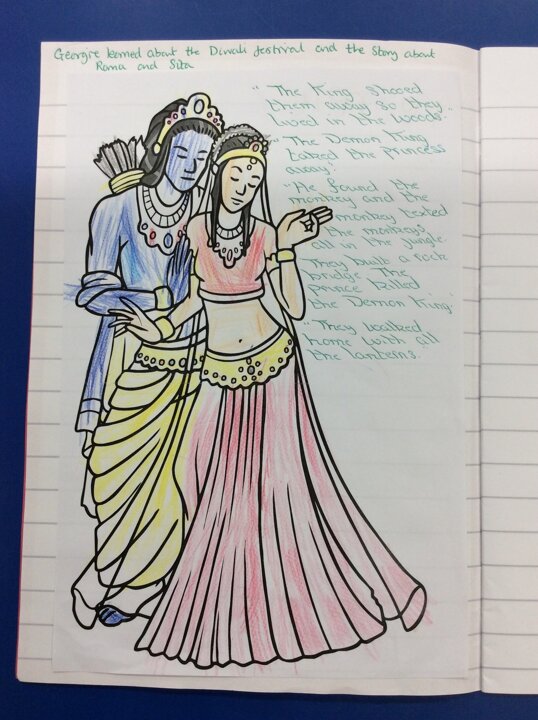 Georgie learned about the Diwali festival and the Story about
Rama and Sita
"The King shooed
them away so they
lived in the woods."
"The Demon King
talked the princess
away."
"He found the
monkey and the
monkey texted
the monkeys
all in the jungle.
They built a rock
bridge. The
prince killed
the Demon King."
"They walked
home with all
the lanterns."